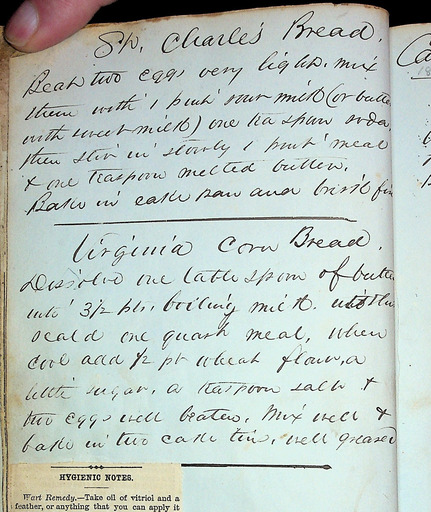 St. Charles Bread.
Beat two eggs very light. mix
them with 1 pint sour milk (or butter
with sweet milk) one tea spoon soda,
then stir in slowly 1 pint meal
& one teaspoon melted butter.
Bake in cake pan and brisk fire
Virginia Corn Bread.
Dissolve one table spoon of butter
into 3½ pts. boiling milk.
scald one quart meal, when
cool add ½ pt wheat flour, a
little sugar, a teaspoon salt &
two eggs well beaten. Mix well &
bake in two cake tins, well greased
HYGIENIC NOTES.
Wart Remedy.—Take oil of vitriol and a
feather, or anything that you can apply it
Ca